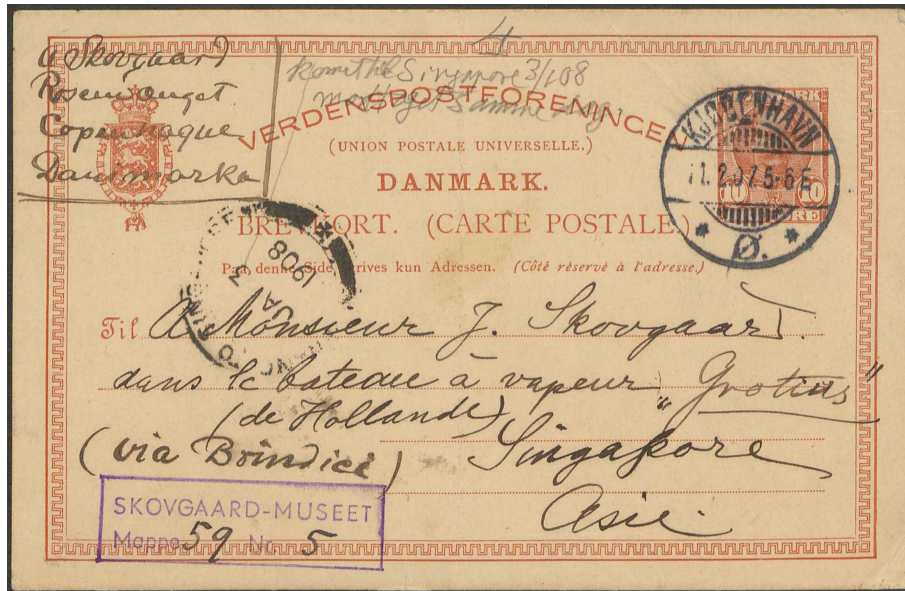 4
Skovgaard
Rosenvænget
Copenhague
Danimarka
Singapore 3/1 08
VERDENSPOSTFORENINGEN
(UNION POSTALE UNIVERSELLE.)
DANMARK.
BREVKORT. (CARTE POSTALE.)
Paa denne Side skrives kun Adressen. (Côté réservé à l'adresse.)
KJØBENHAVN
11.2.07.5-6E
Ø.
10 10
1908
JA
3
Til A Monsieur J. Skovgaard
dans le bateau à vapeur „Grotius"
(de Hollande)
(via Brindici) Singapore
Asie.
SKOVGAARD-MUSEET
Mappe 59 Nr. 5